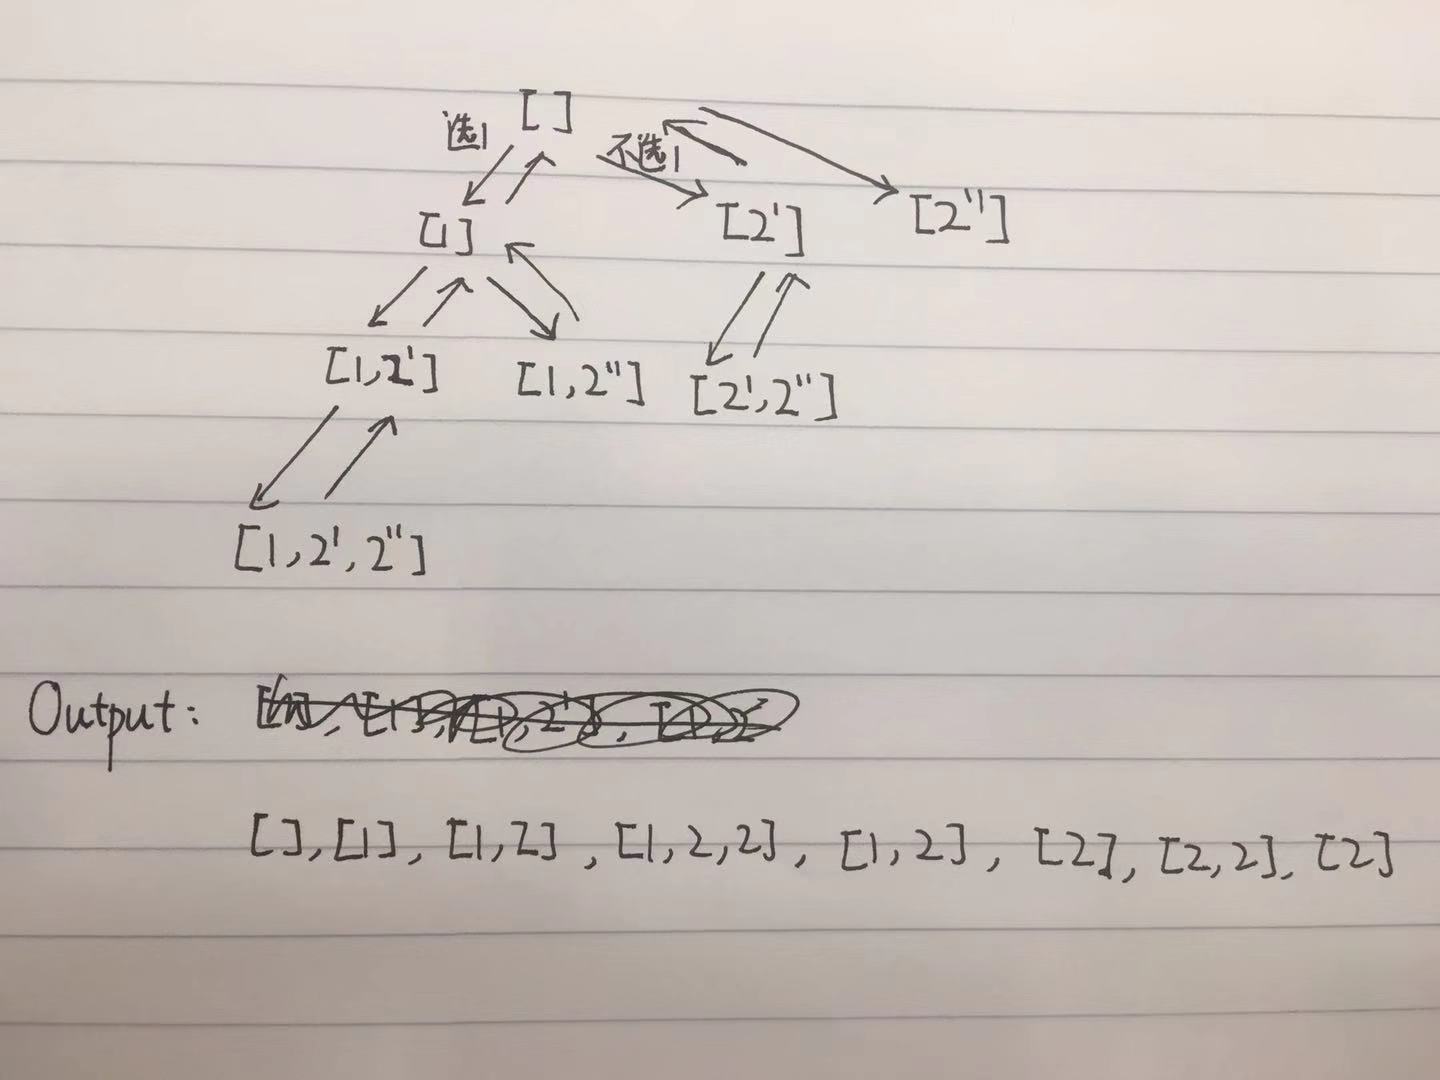 [ ]
选1 不选1
[1] [2'] [2"]
[1,2'] [1,2"] [2',2"]
[1,2',2"]
Output:
[ ],[1],[1,2],[1,2,2],[1,2],[2],[2,2],[2]